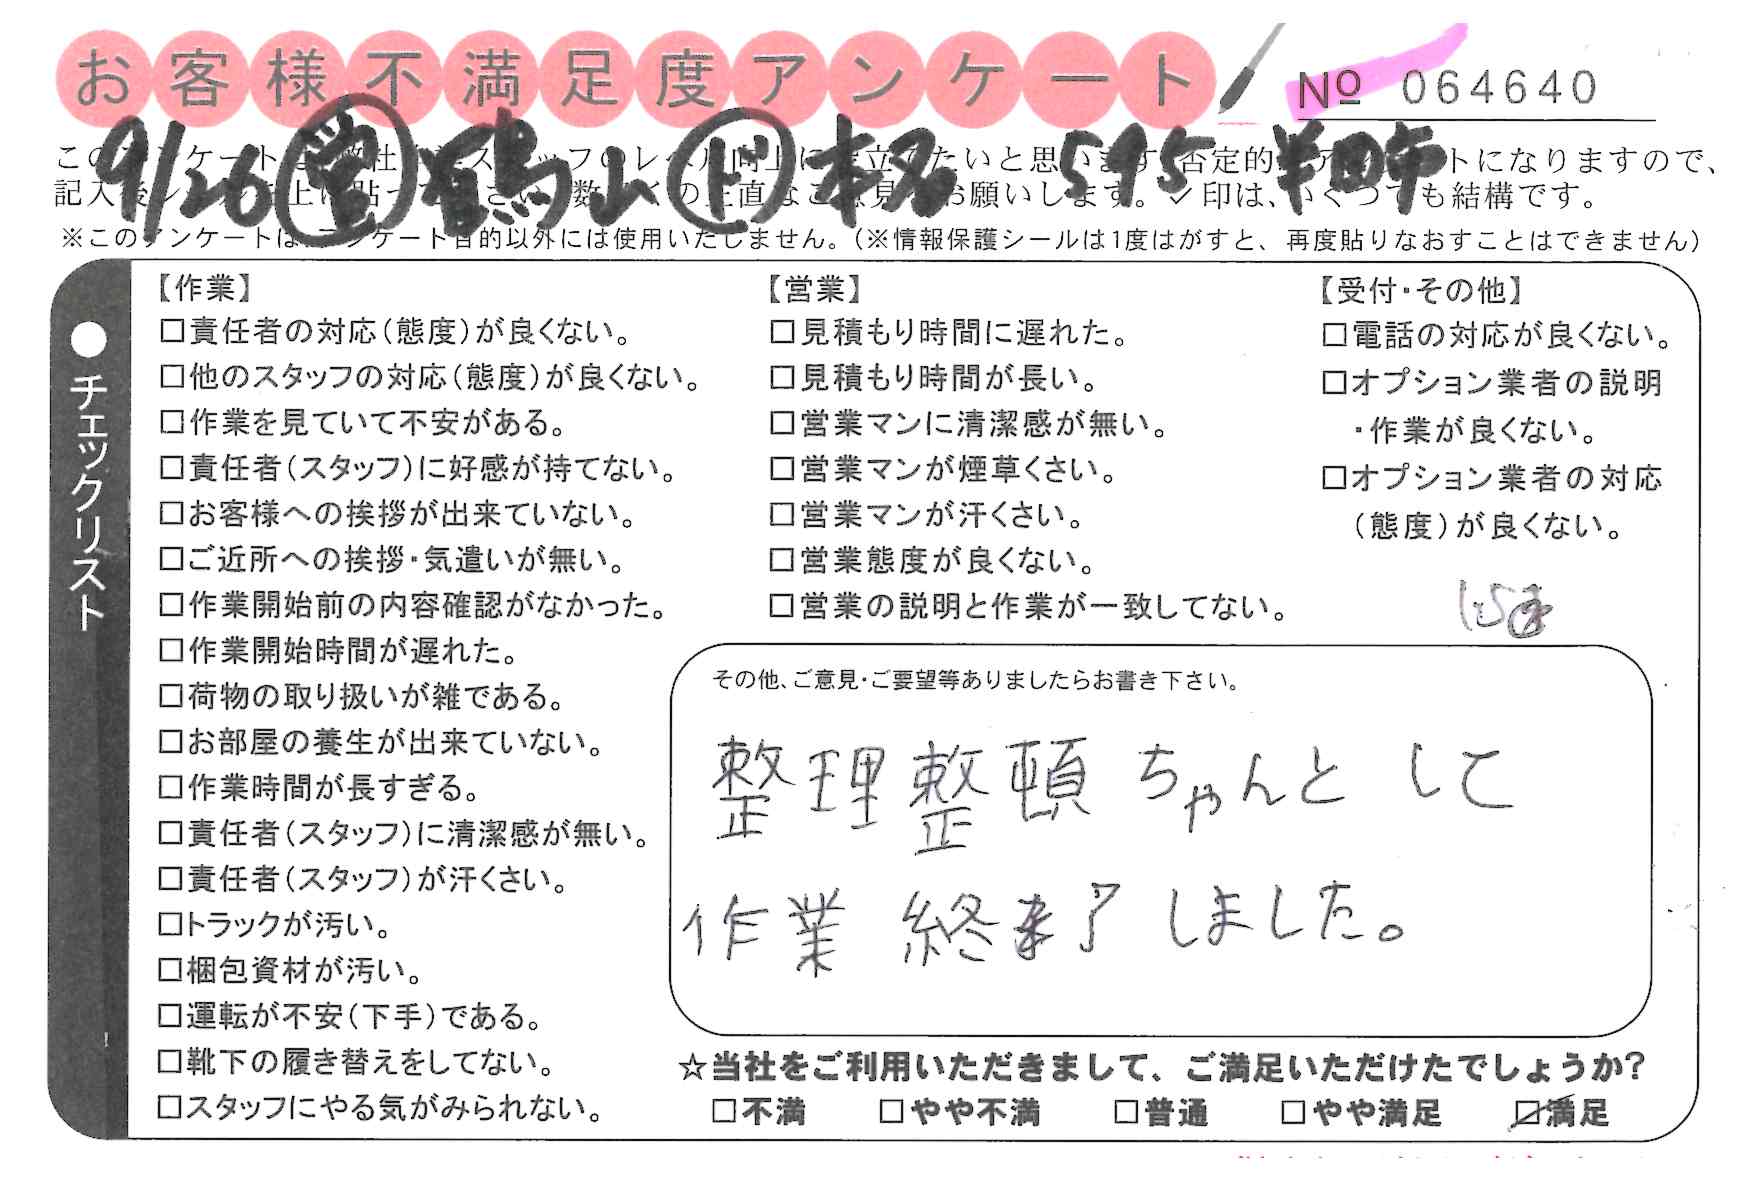 お客様不満足度アンケート
№ 064640
9/26 営 鶴山 ド 本名 595 半田市
※このアンケートは、アンケート目的以外には使用いたしません。（※情報保護シールは1度はがすと、再度貼りなおすことはできません）
●チェックリスト
【作業】
□責任者の対応（態度）が良くない。
□他のスタッフの対応（態度）が良くない。
□作業を見ていて不安がある。
□責任者（スタッフ）に好感が持てない。
□お客様への挨拶が出来ていない。
□ご近所への挨拶・気遣いが無い。
□作業開始前の内容確認がなかった。
□作業開始時間が遅れた。
□荷物の取り扱いが雑である。
□お部屋の養生が出来ていない。
□作業時間が長すぎる。
□責任者（スタッフ）に清潔感が無い。
□責任者（スタッフ）が汗くさい。
□トラックが汚い。
□梱包資材が汚い。
□運転が不安（下手）である。
□靴下の履き替えをしてない。
□スタッフにやる気がみられない。
【営業】
□見積もり時間に遅れた。
□見積もり時間が長い。
□営業マンに清潔感が無い。
□営業マンが煙草くさい。
□営業マンが汗くさい。
□営業態度が良くない。
□営業の説明と作業が一致してない。
【受付・その他】
□電話の対応が良くない。
□オプション業者の説明
・作業が良くない。
□オプション業者の対応
（態度）が良くない。
その他、ご意見・ご要望等ありましたらお書き下さい。
整理整頓ちゃんとして
作業終了しました。
☆当社をご利用いただきまして、ご満足いただけたでしょうか?
□不満 □やや不満 □普通 □やや満足 ☑満足